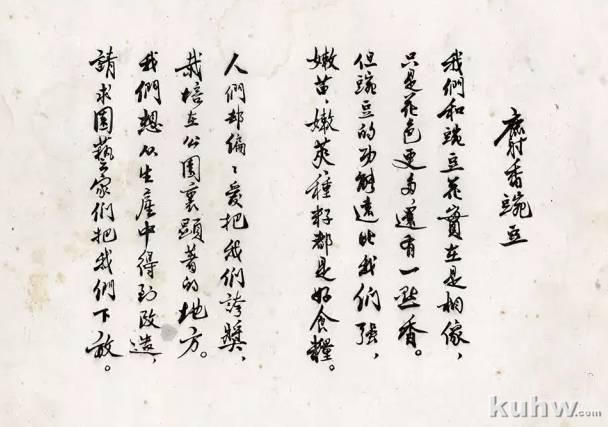 麝香豌豆
我們和豌豆花實在是相像，
只是花色更多還有一點香。
但豌豆的功能遠比我們強，
嫩苗、嫩莢種籽都是好食糧。
人們却偏偏愛把我們誇獎，
栽培在公園裏顯著的地方。
我們想從生產中得到改造，
請求園藝家們把我們下放。
kuhw.com